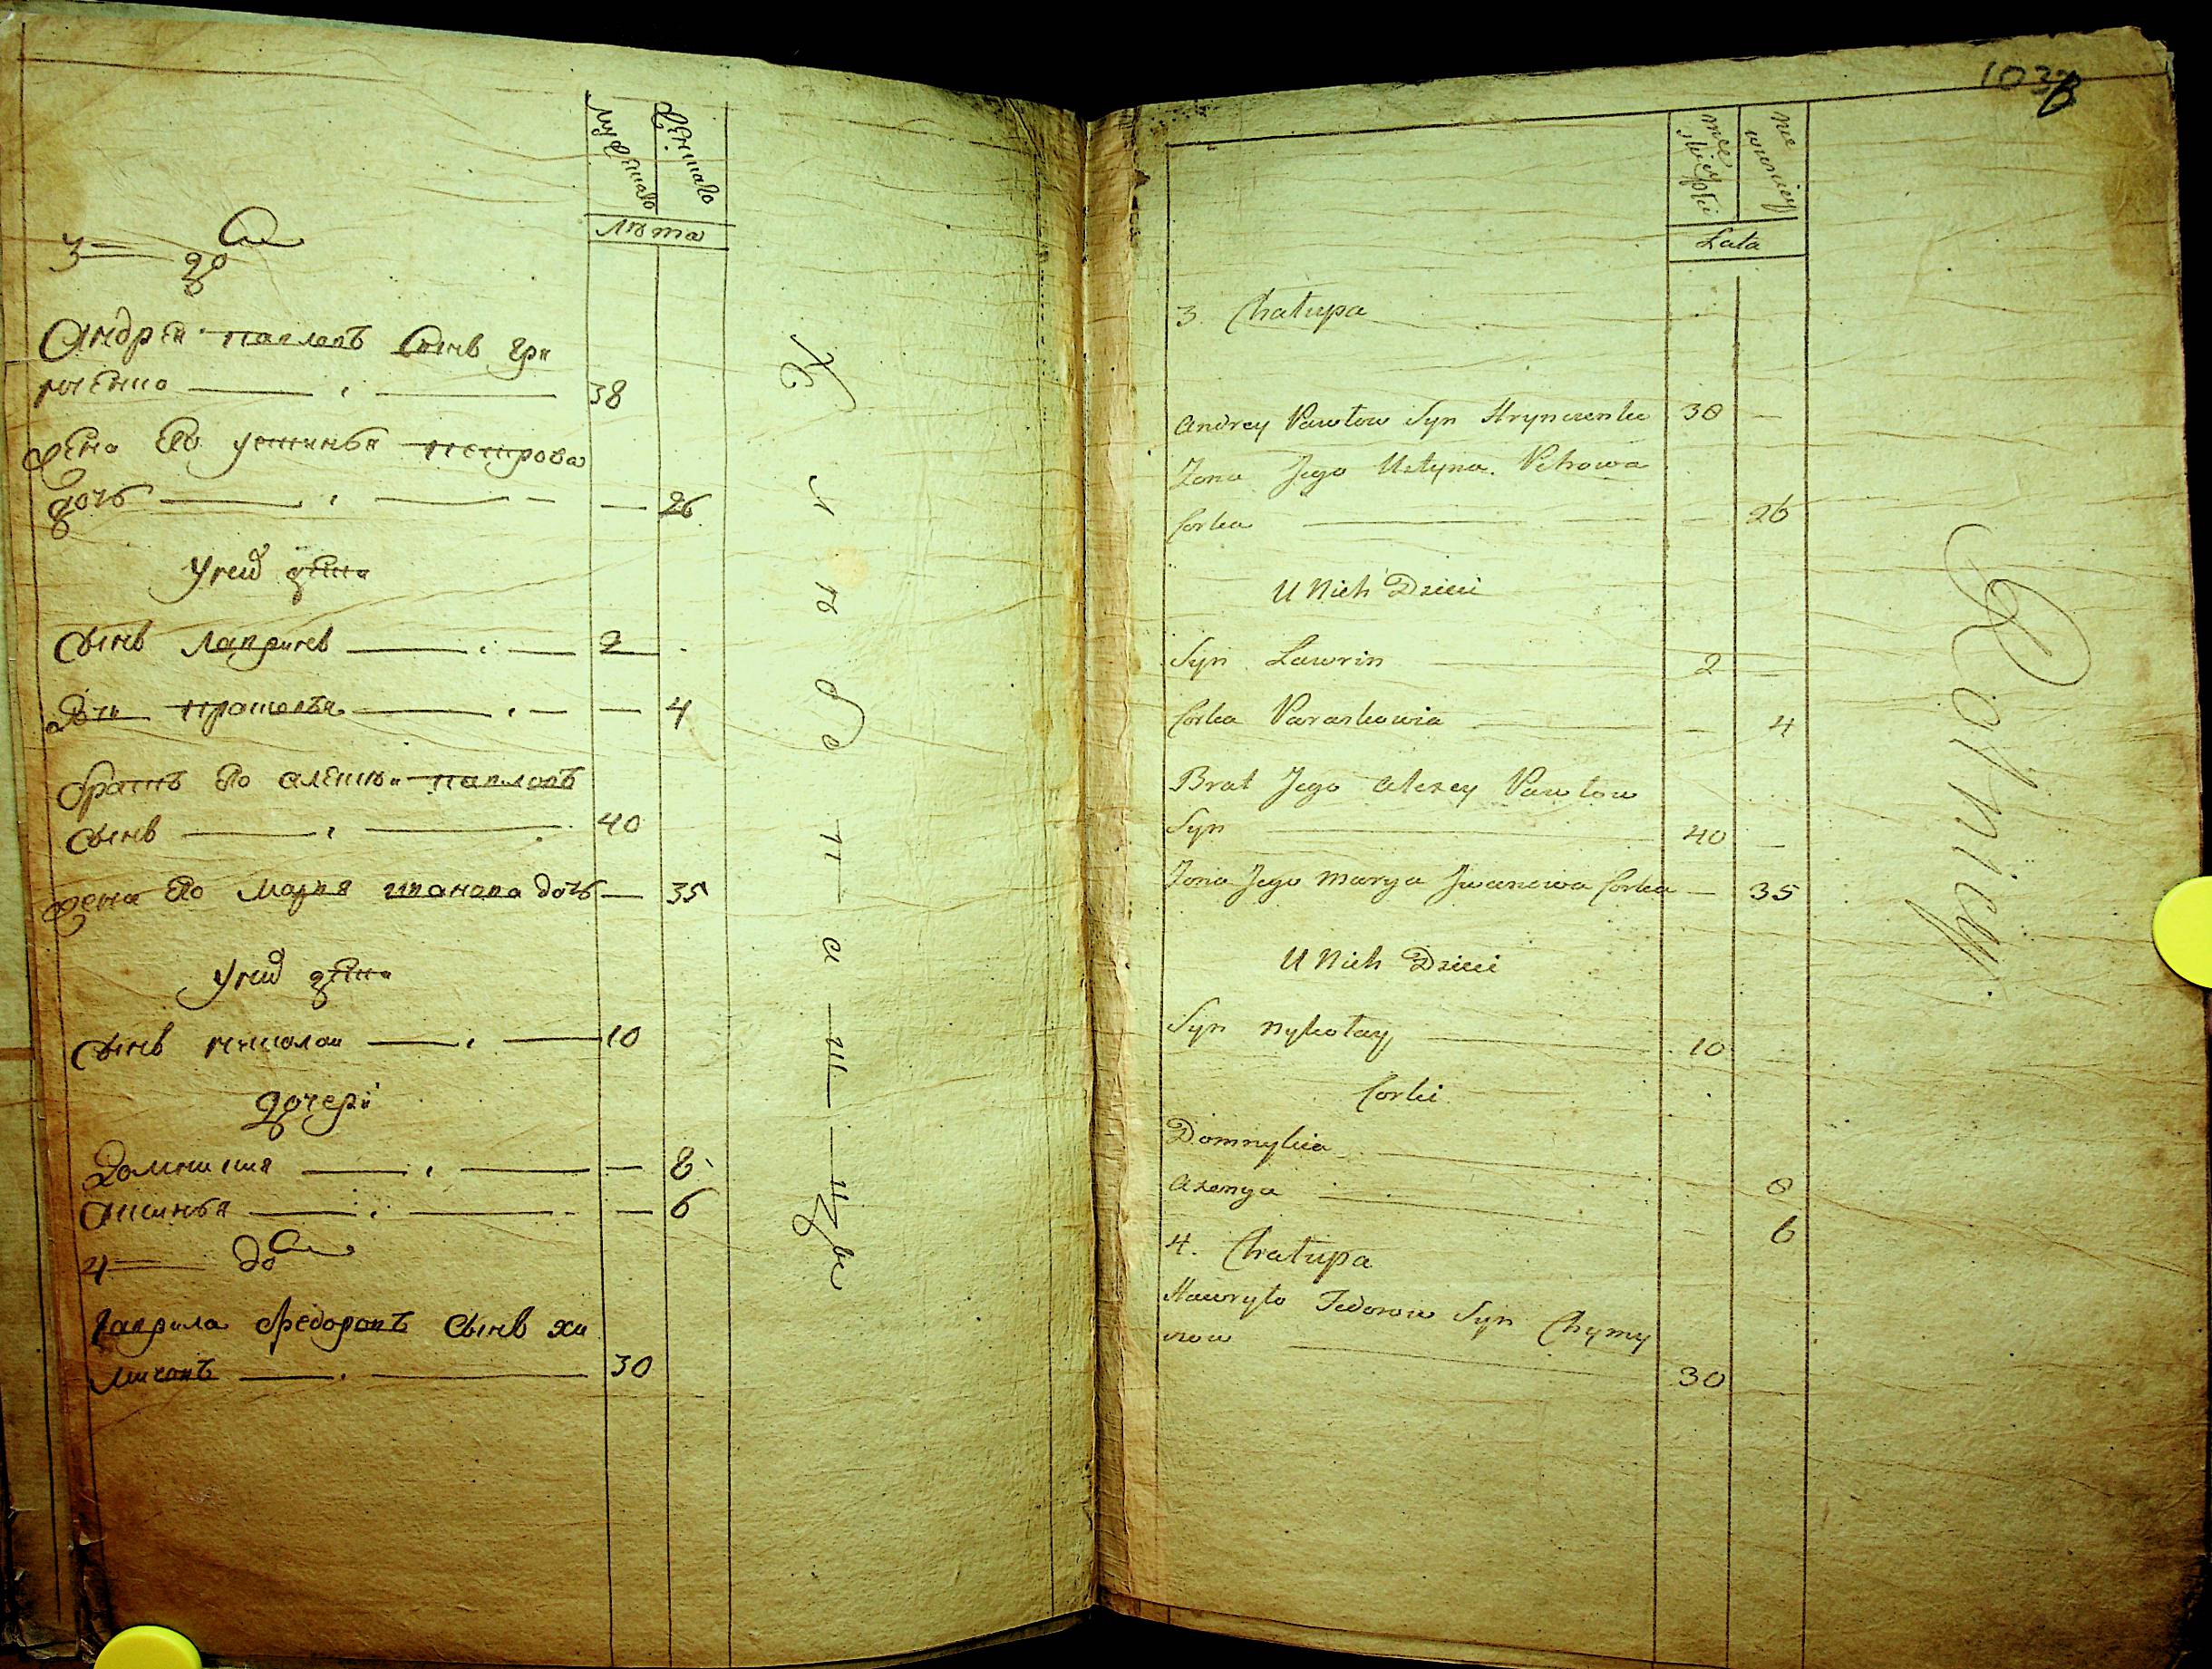 мужеска
женска
лѣта
3 дом
Андрей павловъ Сынъ гри
нченко 38
жена Его устинья петрова
дочь — 26
У них дѣти
Сынъ лавринъ 2
Дочь — 4
братъ Его алексѣй павловъ
сынъ 40
жена Его Мария иванова дочь — 35
У них дѣти
сынъ николай 10
дочери
Домникия — 8
аксинья — 6
4 дом
гаврила Федоровъ сынъ хи
мичовъ 30
Хлѣбопашцы
103
męskiey płci
Lata
3. Chałupa
Andrey Pawłow Syn Hrynczenko 38 —
Żona Jego Ustyna Petrowa
Corka — 26
U Nich Dzieci
Syn Lawrin 2 —
Corka Paraskowia — 4
Brat Jego Alexey Pawłow
Syn 40 —
Żona Jego Marya Jwanowa Corka — 35
U Nich Dzieci
Syn Nykołay 10
Corki
Domnykia 8
Axenya 6
4. Chałupa
Hawryło Fedorow Syn Chymy
czow 30
Rolnicy